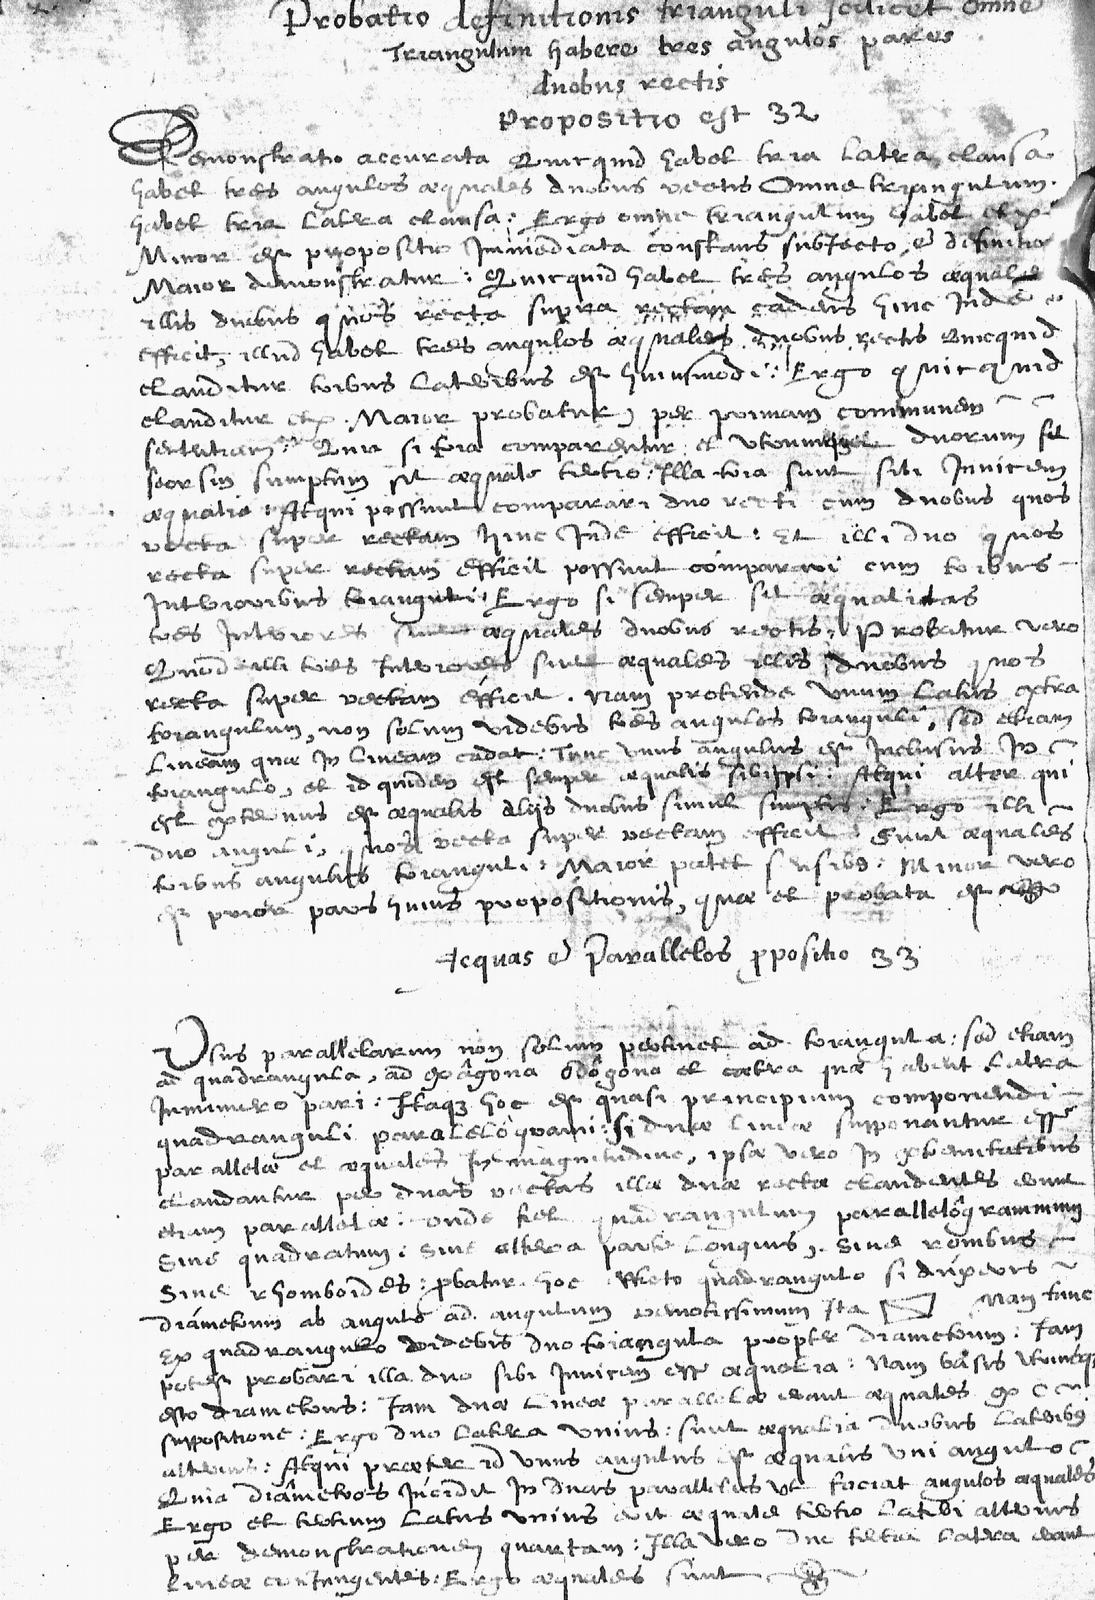 Probatio definitionis trianguli scilicet omne
Triangulum habere tres angulos pares
duobus rectis
Propositio est 32
Demonstratio accurata Quicquid habet tria latera clausa
habet tres angulos æquales duobus rectis Omne triangulum
habet tria latera clausa: Ergo omne triangulum habet etc
Minor est propositio Immediata constans subjecto & definitio
Maior demonstratur: Quicquid habet tres angulos æquales
illis duobus quos recta supra rectam cadens hinc Inde
efficit, illud habet tres angulos æquales duobus rectis Quicquid
clauditur tribus lateribus est huiusmodi: Ergo quicquid
clauditur etc. Maior probatur, per primam communem
sententiam: Quia si tria comparentur et utrumque duorum sit
seorsim sumptum sit æquale tertio: Illa tria sunt sibi Invicem
æqualia: Atqui possunt comparari duo recti cum duobus quos
recta super rectam hinc Inde efficit: Et illi duo quos
recta super rectam efficit possunt comparari cum tribus
Interioribus trianguli: Ergo si semper sit æqualitas
tres Interiores sunt æquales duobus rectis: Probatur vero
Quod illi tres Interiores sint æquales illis duobus quos
recta super rectam efficit. Nam protende unum latus extra
triangulum, non solum videbis tres angulos trianguli, sed etiam
Lineam quæ In lineam cadat: Tunc unus angulus est Inclusus In
triangulo, et id quidem est semper æqualis sibiipsi: Atqui alter qui
est externus est æqualis alijs duobus simul sumptis: Ergo illi
duo anguli, quos recta super rectam efficit sunt æquales
tribus angulis trianguli: Maior patet sensibus: Minor vero
est prior pars huius propositionis, quæ et probata est
Aequas & Parallelos ppositio 33
Usus parallelarum non solum pertinet ad triangula: sed etiam
ad quadrangula, ad exagona odogona et cætera quæ habent latera
Innumero pari: Itaq3 hoc est quasi principium componendi
quadranguli paralelogrami: si duæ lineæ supponantur esse
parallelæ et æquales In magnitudine, ipsæ vero In extremitatibus
claudantur per duas rectas illæ duæ rectæ claudentes erunt
etiam parallelæ: unde fiet quadrangulum parallelogrammum
Sive quadratum: sive altera parte longius, sive rombus
Sive rhomboides: pbatur hoc effecto quadrangulo si duxeris
diametrum ab angulo ad angulum remotissimum Ita Nam tunc
Ex quadrangulo videbis duo triangula propter diametrum: Iam
potest probari illa duo sibi Invicem esse æqualia: Nam basis utriusq
esto diametrus: Iam duæ lineæ parallelæ erant æquales ex
suppositione: Ergo duo latera unius: sunt æqualia duobus lateribus
alterius: Atqui præter id unus angulus est æqualis uni angulo
Quia diametros Incidit In duas parallelas ut faciat angulos æquales
Ergo et tertium latus unius erit æquale tertio lateri alterius
per demonstrationem quartam: Illa vero duo tertia latera erant
lineæ contingentes: Ergo æquales sunt